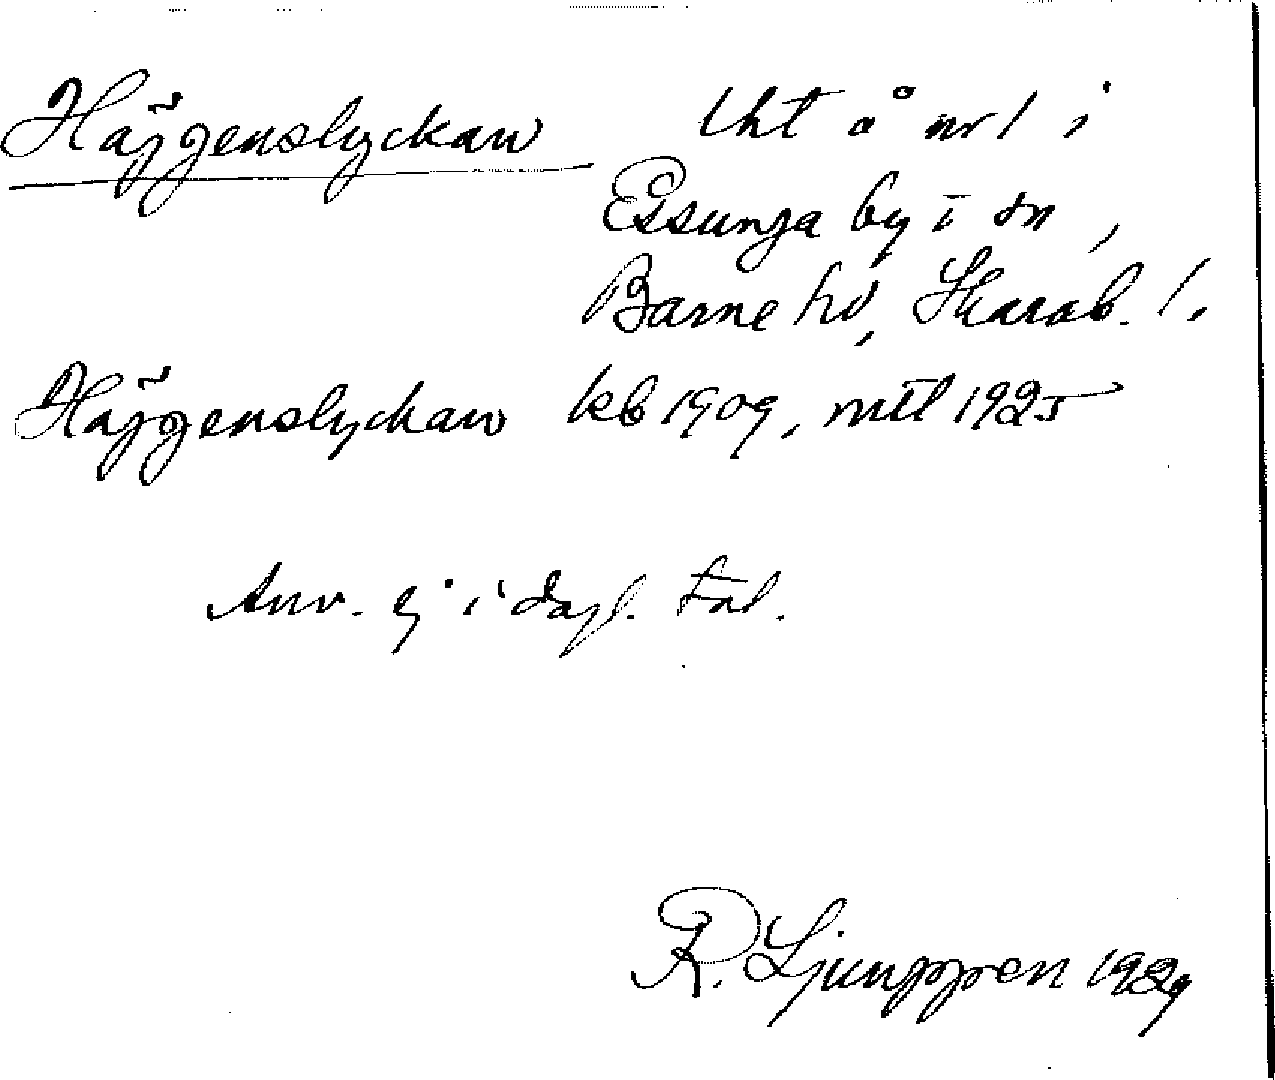 Häggenslyckan lht å nr 1 i
Essunga by i sn,
Barne hd, Skarab. l.
Häggenslyckan kb 1909, mtl 1925
Anv. ej i dagl. tal.
R. Ljunggren 1929